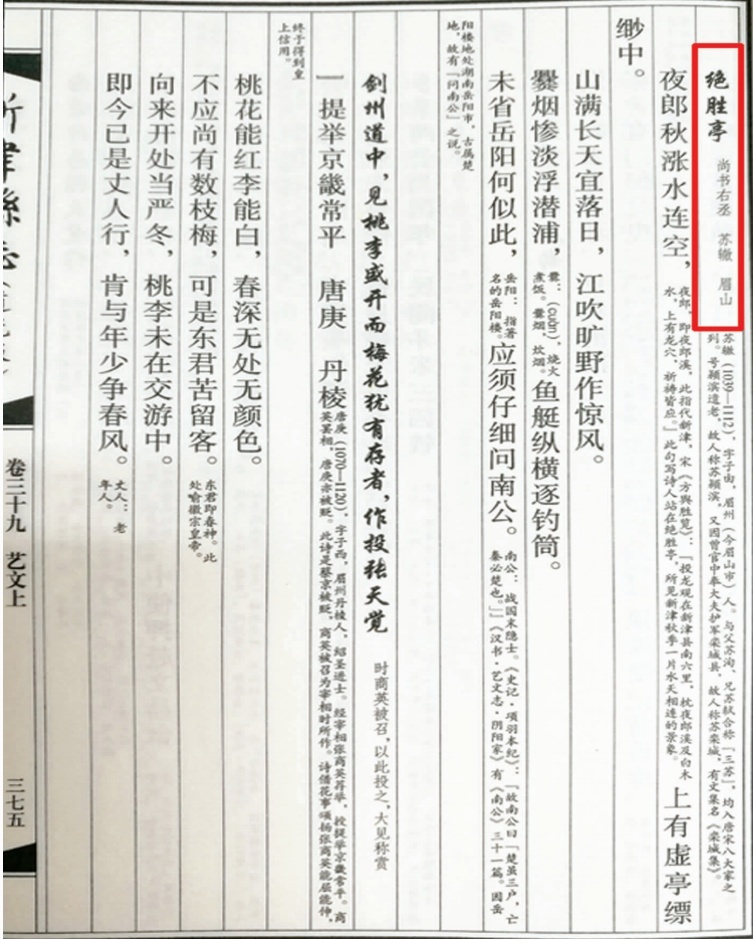 绝胜亭 尚书右丞 苏辙 眉山
苏辙（1039—1112），字子由，眉州（今眉山市）人。与父苏洵、兄苏轼合称「三苏」，均入唐宋八大家之
列。号颍滨遗老，故人称苏颍滨，又因曾官中奉大夫护军栾城县，故人称苏栾城，有文集名《栾城集》。
夜郎秋涨水连空，
夜郎，即夜郎溪，此指代新津，宋《方舆胜览》：「投龙观在新津县南六里，枕夜郎溪及白木
水，上有龙穴，祈祷皆应。」此句写诗人站在绝胜亭，所见新津秋季一片水天相连的景象。
上有虚亭缥
缈中。
山满长天宜落日，江吹旷野作惊风。
爨烟惨淡浮潜浦，
爨：（cuàn），烧火
煮饭。爨烟，炊烟。
鱼艇纵横逐钓筒。
未省岳阳何似此，
岳阳：指著
名的岳阳楼。
应须仔细问南公。
南公：战国末隐士。《史记·项羽本纪》：「故南公曰「楚虽三户，亡
秦必楚也。」」《汉书·艺文志·阴阳家》有《南公》三十一篇。因岳
阳楼地处湖南岳阳市，古属楚
地，故有「问南公」之说。
剑州道中，见桃李盛开而梅花犹有存者，作投张天觉 时商英被召，以此投之，大见称赏
提举京畿常平 唐庚 丹棱
唐庚（1070—1120），字子西，眉州丹棱人，绍圣进士。经宰相张商英荐举，授提举京畿常平。商
英罢相，唐庚亦被贬。此诗是蔡京被贬，商英被召为宰相时所作。诗借花事颂扬张商英能屈能伸，
终于得到皇
上信用。
桃花能红李能白，春深无处无颜色。
不应尚有数枝梅，可是东君苦留客。
东君即春神。此
处喻徽宗皇帝。
向来开处当严冬，桃李未在交游中。
即今已是丈人行，肯与年少争春风。
丈人：老
年人。
卷三十九 艺文上
三七五